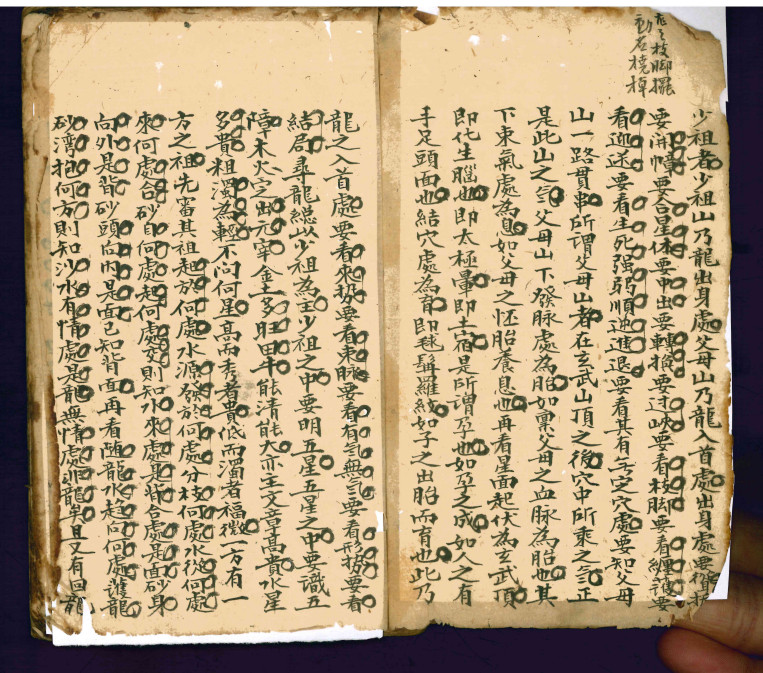 龍之枝脚擺
動者橈棹
少祖者少祖山乃龍出身處父母山乃龍入首處出身處要
要開幛要合星体要中出要轉換要过峽要看枝脚要看纏護要
看迎送要看生死强弱順逆進退要看其有无定穴處要知父母
山一路貫串所謂父母山者在玄武山頂之後穴中所乘之气正
是此山之气父母山下發脉處為胎如稟父母之血脉為胎也其
下束氣處為息如父母之怌胎養息也再看星面起伏為玄武頂
即化生腦也即太極暈即土宿是所謂孕也如孕之成如人之有
手足頭面也結穴處為育即毬髯羅紋如子之出胎而育也此乃
龍之入首處要看來势要看來脉要看有气無气要看形势要看
結局尋龍總以少祖為主少祖之中要明五星五星之中要識五
障木火定出元宰金土多旺田牛能清能大亦主文章高貴水星
多貴粗濁為輕不问何星高而秀者貴低而濁者福微一方有一
方之祖先審其祖起於何處水源發於何處分枝何處水從何處
來何處合砂自何處起何處交則知水來處是背合處是面砂身
向外是背砂頭向内是面已知背面再看随龍水趋向何處護龍
砂湾抱何方則知沙水有情處是龍無情處非龍矣且又有回龍